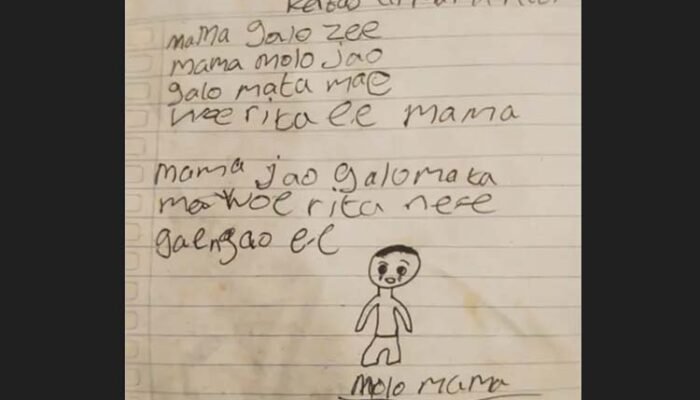 mama galo zee
mama molo jao
galo mata mae
woe rita ee mama
mama jao galomata
ma woe rita nefe
gaengao e-e
molo mama